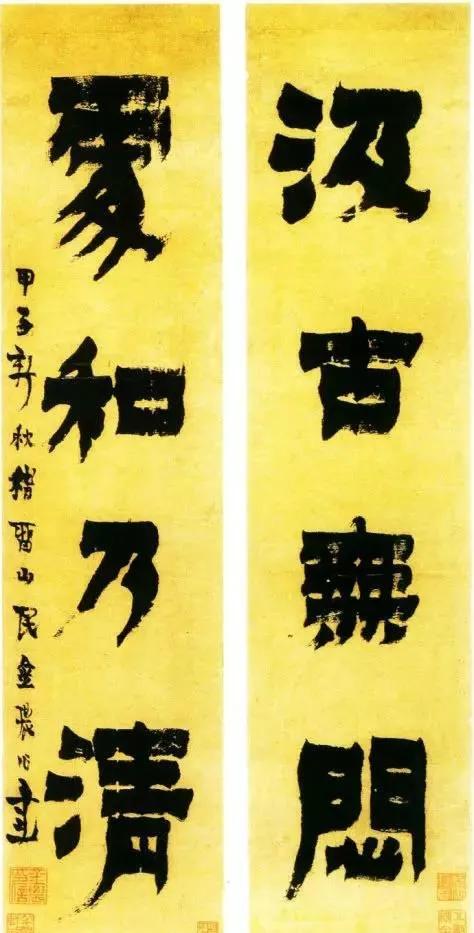 汲古無悶
處和乃清
甲子新秋稽留山民金農作書